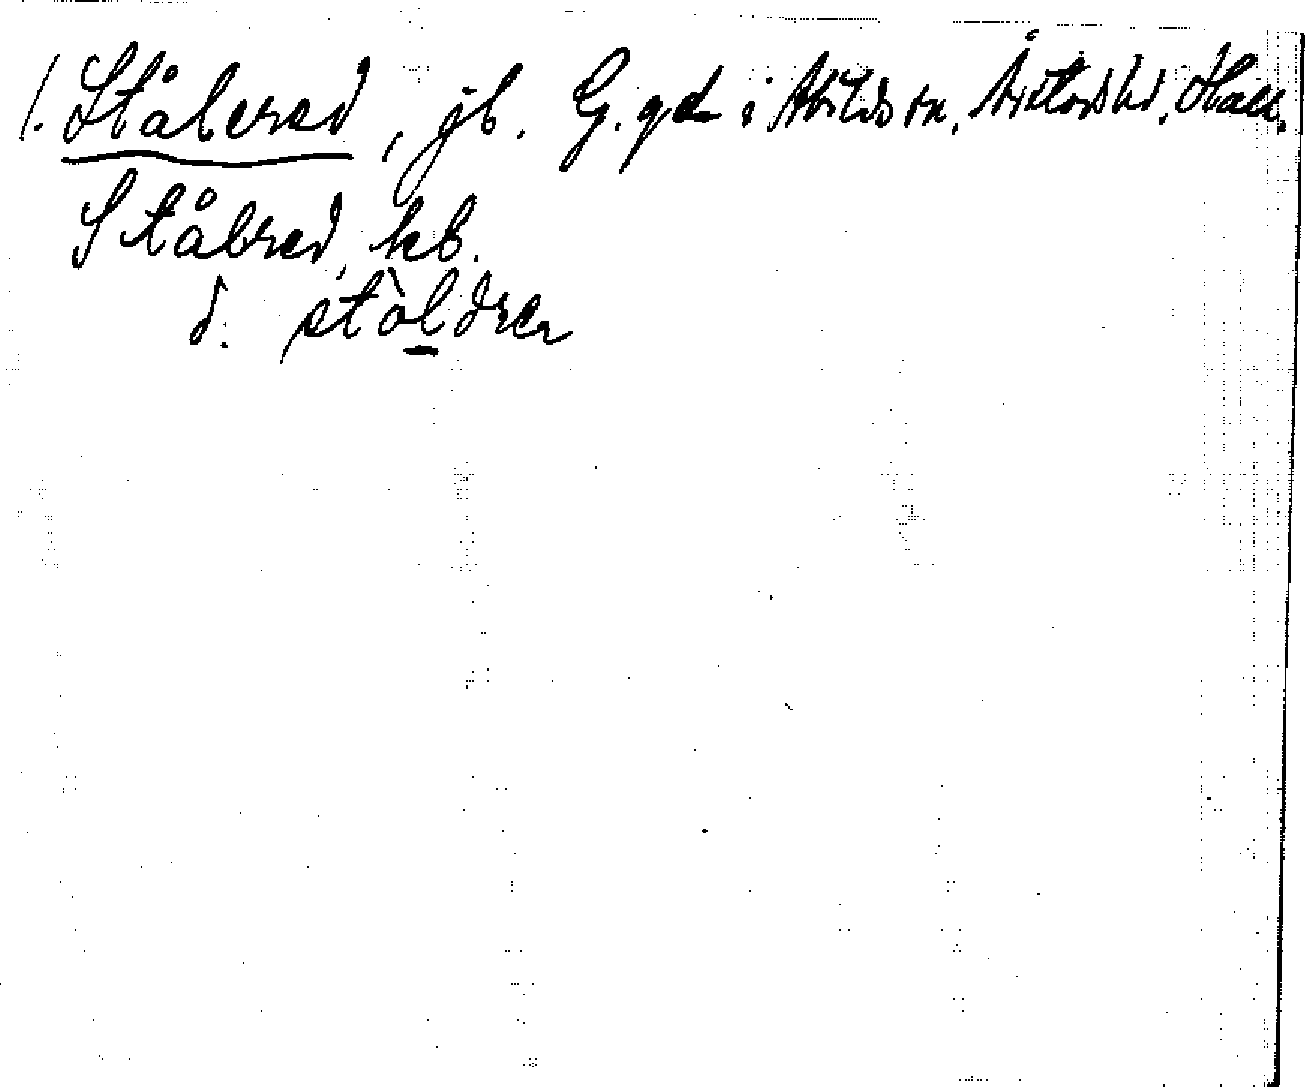 1. Stålered, jb. G. gd i Abilds sn, Årstads hd, Hall.
Stålred, kb.
d. stòldrer